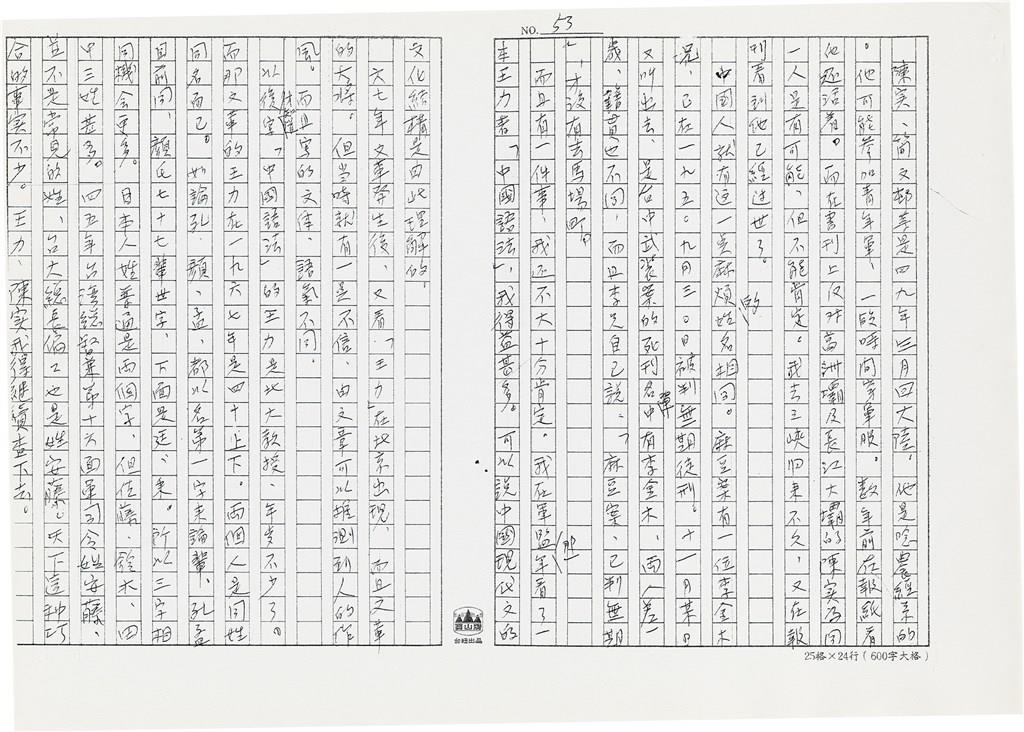 NO. 53
陳实、簡文邨等是四九年三月回大陸。他是唸農經系的
。他可能參加青年軍、一段時間當軍服。数年前在報紙看
他还活着。而在書刊上役对葛洲壩及長江大壩的陳实為同
一人是有可能、但不能肯定。我去三峡归来不久、又在報
刊看到他已經过世了。
中國人就有这一点麻煩姓名相同。麻豆案有一位李金木
兄、已在一九五〇.九月三〇日被判無期徒刑。十一月某日
又叫出去、是台中武装案的死刑名單中有李金木、两人差一
歲、籍貫也不同，而且李兄自己說：「麻豆案、已判無期
」，才没有去馬場町。
而且有一件事、我还不大十分肯定。我在軍監年看了一
本王力著「中國語法」，我得益甚多。可以說中國現代文的
文化結構是由此理解的。
六七年文革發生後、又看「王力」在北京出現、而且文革
的大將。但当時就有一点不信、由文章可以推測到人的作
風。而且字的文体、語氣不同。
以後才知道寫「中國語法」的王力是北大教授、年岁不少了。
而那文革的王力在一九六七年是四十上下。兩個人是同姓
同名而已。如論孔、顏、孟、都以名第一字来論輩、孔孟
目前同、顏氏七十七輩世字、下面是廷、秉。所以三字相
同機会更多。日本人姓普通是两個字、但佐藤、鈴木、四
中三姓甚多。四五年台湾總督兼第十方面軍司令姓安藤、
並不是常見的姓、台大總長偏又也是姓安藤。天下這种巧
合的事实不少。王力、陳实我得继續查下去。
寶山牌
台紐出品
25格×24行（600字大格）